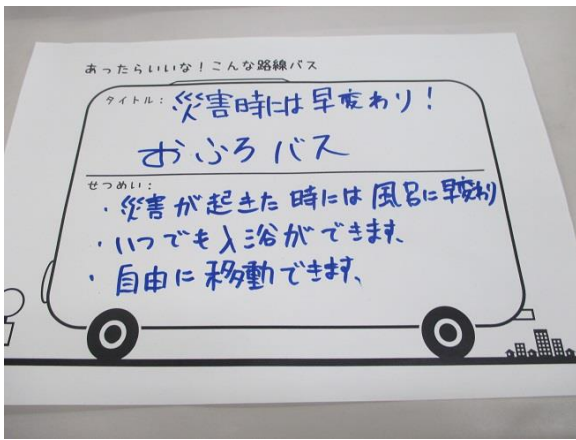 あったらいいな！こんな路線バス
タイトル：災害時には早変わり！
おふろバス
せつめい：
・災害が起きた時には風呂に早変わり
・いつでも入浴ができます、
・自由に移動できます、